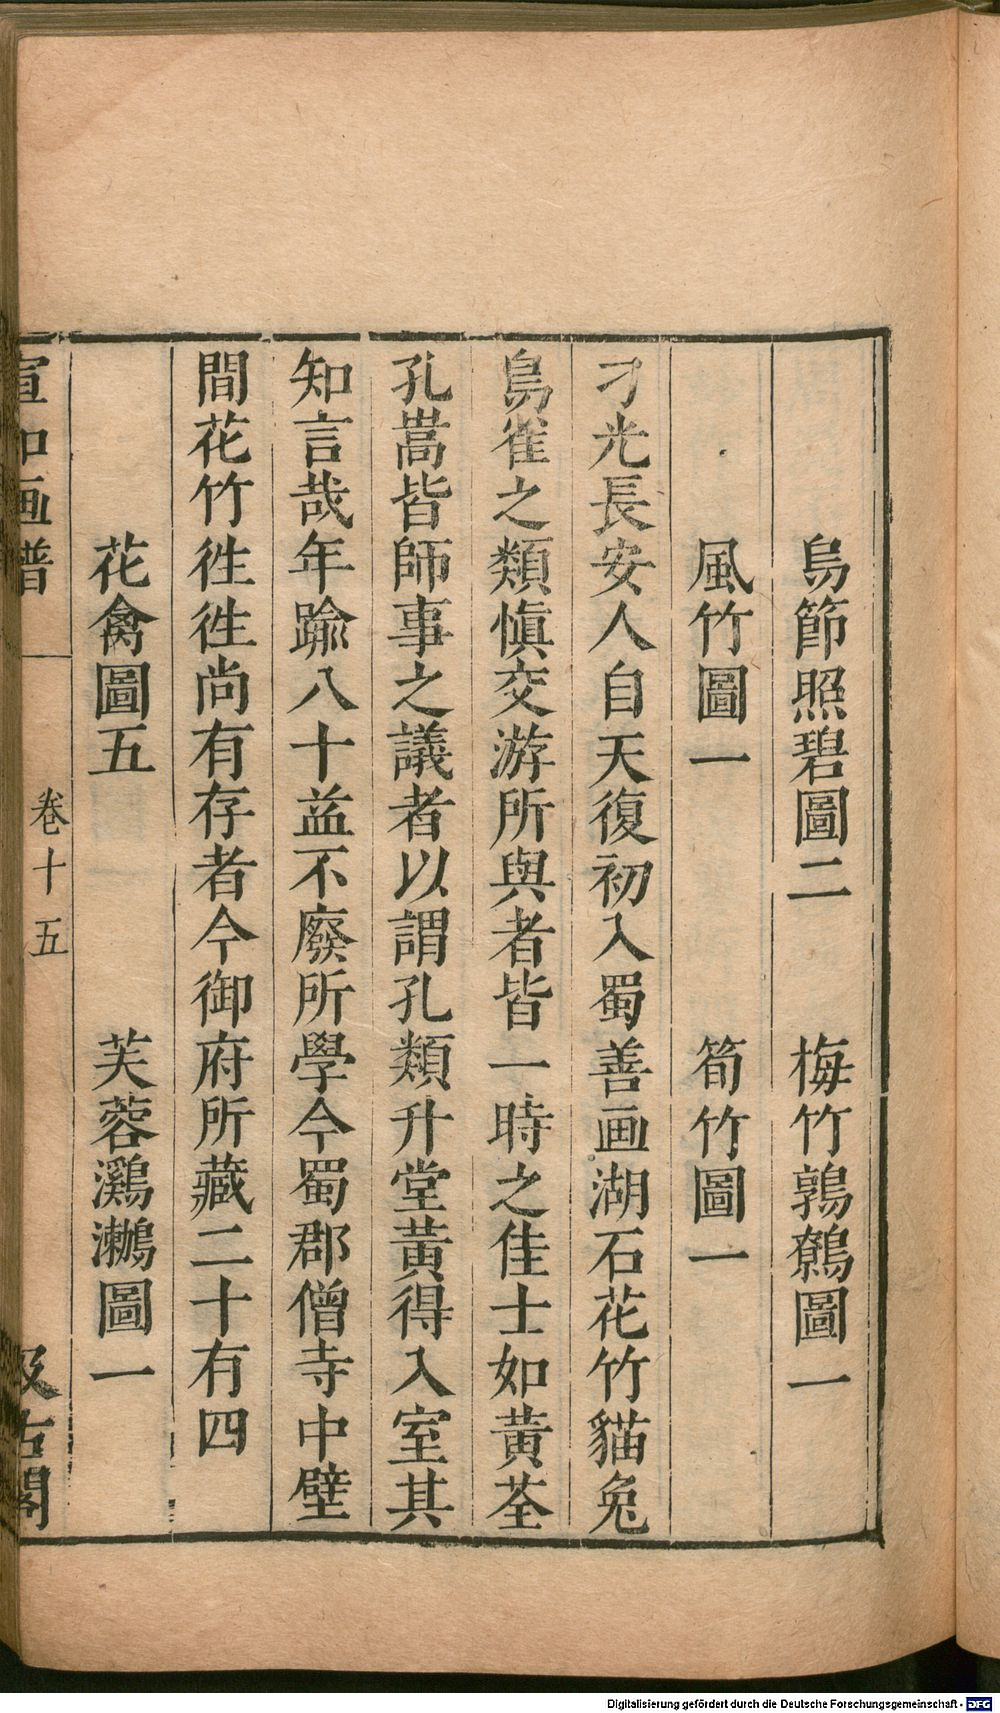 烏節照碧圖二 梅竹鶉鷯圖一
風竹圖一 筍竹圖一
刁光長安人自天復初入蜀善画湖石花竹貓兔
鳥雀之類慎交游所與者皆一時之佳士如黃荃
孔嵩皆師事之議者以謂孔類升堂黃得入室其
知言哉年踰八十益不廢所學今蜀郡僧寺中壁
間花竹徃徃尚有存者今御府所藏二十有四
花禽圖五 芙蓉鸂鷘圖一
宣和画譜 卷十五 汲古閣
Digitalisierung gefördert durch die Deutsche Forschungsgemeinschaft - DFG